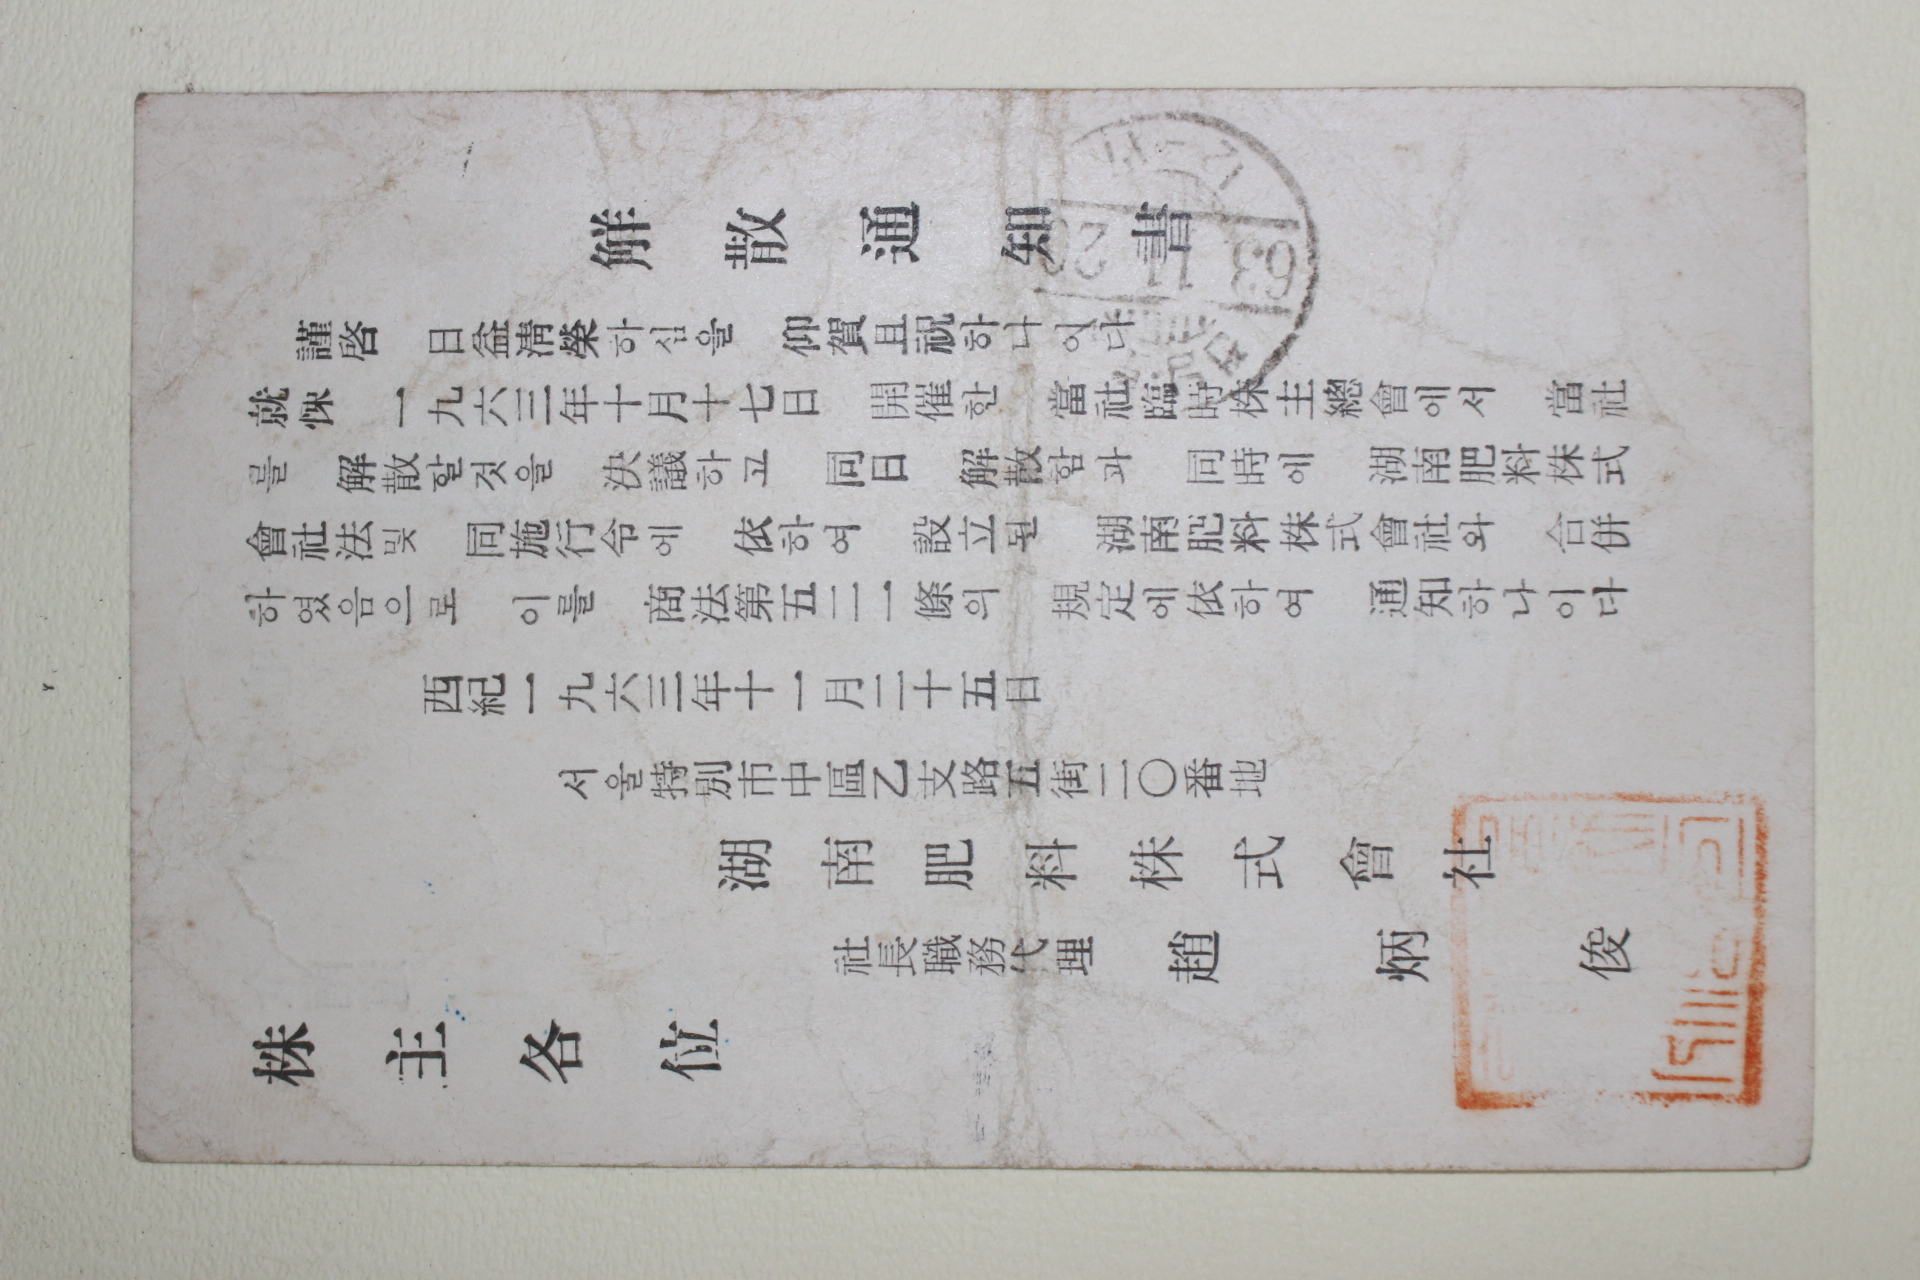 解散通知書
謹啓 日益淸榮하심을 仰賀且祝하나이다
就悚 一九六三年十月十七日 開催한 當社臨時株主總會에서 當社
를 解散할것을 決議하고 同日 解散함과 同時에 湖南肥料株式
會社法및 同施行令에 依하여 設立된 湖南肥料株式會社와 合併
하였음으로 이를 商法第五二一條의 規定에依하여 通知하나이다
西紀一九六三年十一月二十五日
서울特別市中區乙支路五街二〇番地
湖南肥料株式會社
社長職務代理 趙炳俊
株主各位
63
11